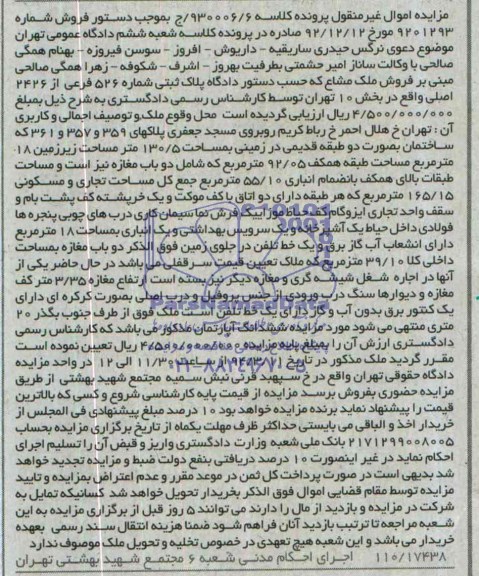 مزایده اموال غیرمنقول پرونده کلاسه ۹۳۰۰۰۶/۶/ج بموجب دستور فروش شماره
۹۲۰۱۲۹۳ مورخ ۹۲/۱۲/۱۲ صادره در پرونده کلاسه شعبه ششم دادگاه عمومی تهران
موضوع دعوی نرگس حیدری ساریقیه - داریوش - افروز - سوسن فیروزه - بهنام همگی
صالحی با وکالت ساناز امیر حشمتی بطرفیت بهروز - اشرف - شکوفه - زهرا همگی صالحی
مبنی بر فروش ملک مشاع که حسب دستور دادگاه پلاک ثبتی شماره ۵۲۶ فرعی از ۲۴۲۶
اصلی واقع در بخش ۱۰ تهران توسط کارشناس رسمی دادگستری به شرح ذیل بمبلغ
۴/۵۰۰/۰۰۰/۰۰۰ ریال ارزیابی گردیده است محل وقوع ملک و توصیف اجمالی و کاربری
آن : تهران خ هلال احمر خ رباط کریم روبروی مسجد جعفری پلاکهای ۳۵۹ و ۳۵۷ و ۳۶۱ که
ساختمان بصورت دو طبقه قدیمی در زمینی بمساحت ۱۳۰/۵ متر مساحت زیرزمین ۱۸
مترمربع مساحت طبقه همکف ۹۲/۰۵ مترمربع که شامل دو باب مغازه نیز است و مساحت
طبقات بالای همکف بانضمام انباری ۵۵/۱۰ مترمربع جمع کل مساحت تجاری و مسکونی
۱۶۵/۱۵ مترمربع که هر طبقه دارای دو اتاق با کف موکت و یک خرپشته کف پشت بام و
سقف واحد تجاری ایزوگام کف حیاط موزاییک فرش نما سیمان کاری درب های چوبی پنجره ها
فولادی داخل حیاط یک آشپزخانه و یک سرویس بهداشتی و یک انباری بمساحت ۱۸ مترمربع
دارای انشعاب آب گاز برق و یک خط تلفن در جلوی زمین فوق الذکر دو باب مغازه بمساحت
داخلی کلا ۳۹/۱۰ مترمربع که ملاک تعیین قیمت سرقفلی می باشد در حال حاضر یکی از
آنها در اجاره شغل شیشه گری و مغازه دیگر نیز بسته است ارتفاع مغازه ۳/۳۵ متر کف
مغازه و دیوارها سنگ درب ورودی از جنس پروفیل و درب اصلی بصورت کرکره ای دارای
یک کنتور برق بدون آب و گاز دارای یک خط تلفن است ملک فوق از طرف جنوب بگذر ۲۰
متری منتهی می شود مورد مزایده ششدانگ آپارتمان مذکور می باشد که کارشناس رسمی
دادگستری ارزش آن را بمبلغ پایه مزایده ۴/۵۰۰/۰۰۰/۰۰۰ ریال تعیین نموده است
مقرر گردید ملک مذکور در تاریخ ۹۴/۳/۱۰ از ساعت ۱۱/۳۰ الی ۱۲ در واحد مزایده
دادگاه حقوقی تهران واقع در خ سپهبد قرنی نبش سمیه مجتمع شهید بهشتی از طریق
مزایده حضوری بفروش برسد مزایده از قیمت پایه کارشناسی شروع و کسی که بالاترین
قیمت را پیشنهاد نماید برنده مزایده خواهد بود ۱۰ درصد مبلغ پیشنهادی فی المجلس از
خریدار اخذ و الباقی می بایستی حداکثر ظرف مهلت یکماه از تاریخ برگزاری مزایده بحساب
۲۱۷۱۲۹۹۰۰۸۰۰۵ بانک ملی شعبه وزارت دادگستری واریز و قبض آن را تسلیم اجرای
احکام نماید در غیر اینصورت ۱۰ درصد دریافتی بنفع دولت ضبط و مزایده تجدید خواهد
شد بدیهی است در صورت پرداخت کل ثمن در موعد مقرر و عدم اعتراض بمزایده و تایید
مزایده توسط مقام قضایی اموال فوق الذکر بخریدار تحویل خواهد شد کسانیکه تمایل به
شرکت در مزایده و بازدید از مال را دارند می توانند ۵ روز قبل از برگزاری مزایده به این
شعبه مراجعه تا ترتیب بازدید آنان فراهم شود ضمنا هزینه انتقال سند رسمی بعهده
خریدار می باشد و این شعبه هیچ تعهدی در خصوص تخلیه و تحویل ملک موصوف ندارد
۱۱۰/۱۷۴۳۸ اجرای احکام مدنی شعبه ۶ مجتمع شهید بهشتی تهران